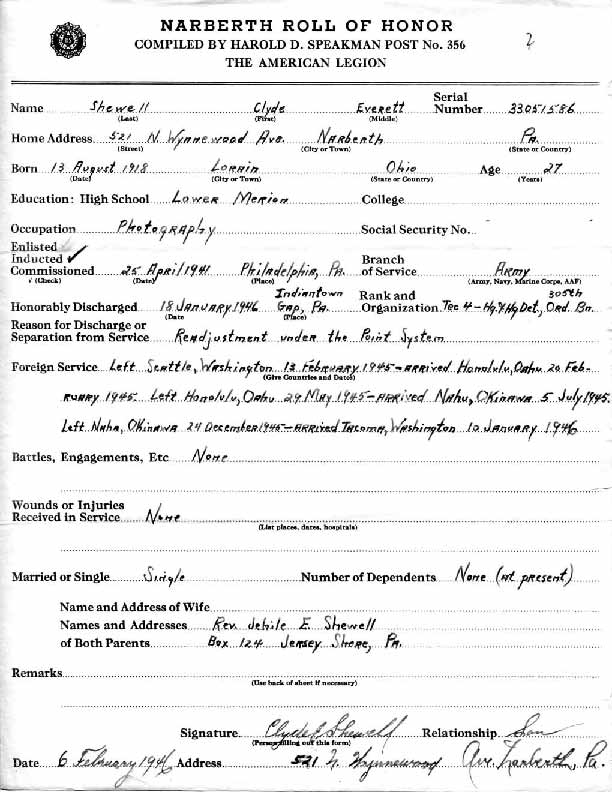 NARBERTH ROLL OF HONOR
COMPILED BY HAROLD D. SPEAKMAN POST No. 356
THE AMERICAN LEGION
2
Name Shewell Clyde Everett Serial Number 33051586
(Last) (First) (Middle)
Home Address 521 N. Wynnewood Ave. Narberth Pa.
(Street) (City or Town) (State or Country)
Born 13 August 1918 Lorain Ohio Age 27
(Date) (City or Town) (State or Country) (Years)
Education: High School Lower Merion College
Occupation Photography Social Security No.
Enlisted
Inducted ✓
Commissioned 25 April 1941 Philadelphia, Pa. Branch of Service Army
√ (Check) (Date) (Place) (Army, Navy, Marine Corps, AAF)
Honorably Discharged 18 January 1946 Indiantown Gap, Pa. Rank and Organization Tec 4 - Hq & Hq Det., 305th Ord. Bn.
(Date (Place)
Reason for Discharge or
Separation from Service Readjustment under the Point System
Foreign Service Left Seattle, Washington 13 February 1945 - arrived Honolulu, Oahu 20 Feb-
(Give Countries and Dates)
ruary 1945. Left Honolulu, Oahu 29 May 1945 - arrived Nahu, Okinawa 5 July 1945.
Left Naha, Okinawa 24 December 1945 - arrived Tacoma, Washington 10 January 1946
Battles, Engagements, Etc None
Wounds or Injuries
Received in Service None
(List places, dates, hospitals)
Married or Single Single Number of Dependents None (at present)
Name and Address of Wife
Names and Addresses Rev. E. Shewell
of Both Parents Box 124 Jersey Shore, Pa.
Remarks
(Use back of sheet if necessary)
Signature Clyde E Shewell Relationship Son
(Person filling out this form)
Date 6 February 1946 Address 521 N. Wynnewood Ave. Narberth, Pa.